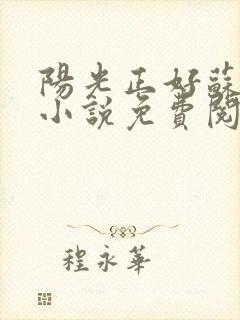 陽光正好蘇
小說免費閱
程永華